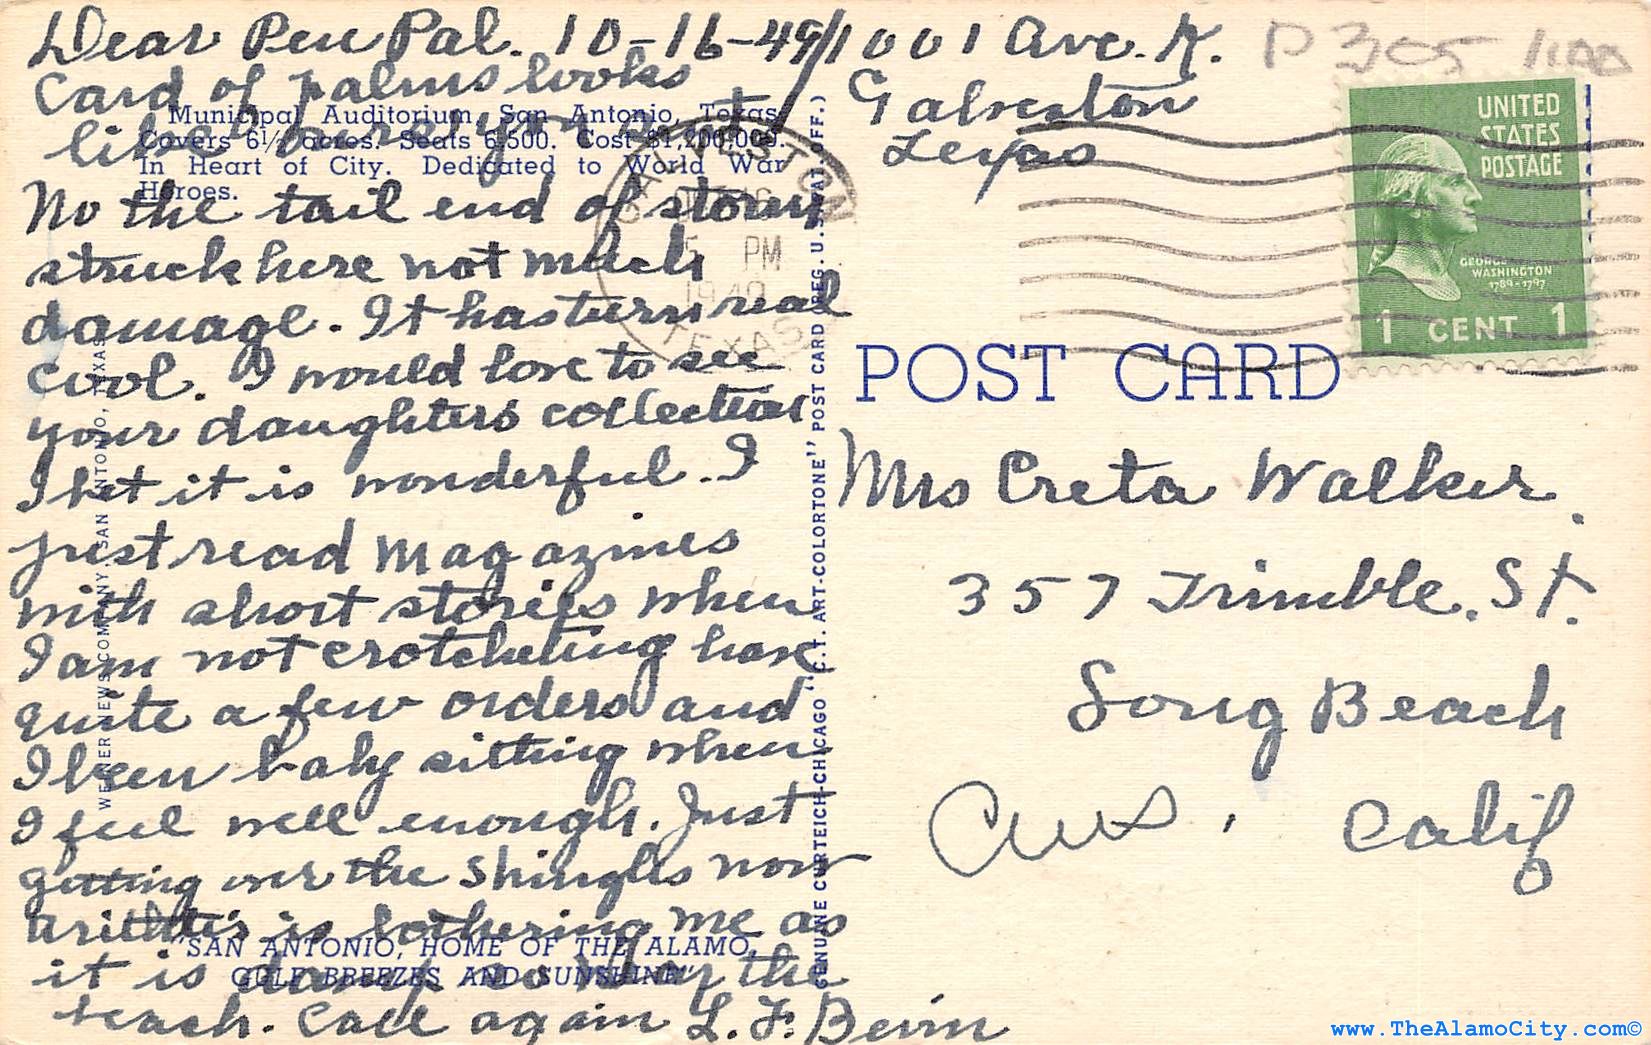 Dear Pen Pal. 10-16-49/1001 Ave. K.
Galveston
Texas
Card of palms looks
like where you
No the tail end of storm
struck here not much
damage. It has turn real
cool. I would love to see
your daughters collection
I bet it is wonderful. I
just read Magazines
with short stories when
I am not crotcheting have
quite a few orders and
I been baby sitting when
I feel well enough. Just
getting over the shingles now
is bothering me as
it is damp so near the
beach. Call again L. F.
Municipal Auditorium, San Antonio, Texas.
Covers 6½ acres. Seats 6,500. Cost $1,200,000.
In Heart of City. Dedicated to World War
Heroes.
WEINER NEWS COMPANY, SAN ANTONIO, TEXAS
"SAN ANTONIO, HOME OF THE ALAMO,
GULF BREEZES AND SUNSHINE"
GENUINE CURTEICH-CHICAGO "C.T. ART-COLORTONE" POST CARD (REG. U.S. PAT. OFF.)
GALVESTON
OCT 16
5 PM
1949
TEXAS
P 305
UNITED
STATES
POSTAGE
GEORGE
WASHINGTON
1789-1797
1 CENT 1
POST CARD
Mrs Creta Walker.
357 Trimble. St.
Long Beach
Calif
www.TheAlamoCity.com©